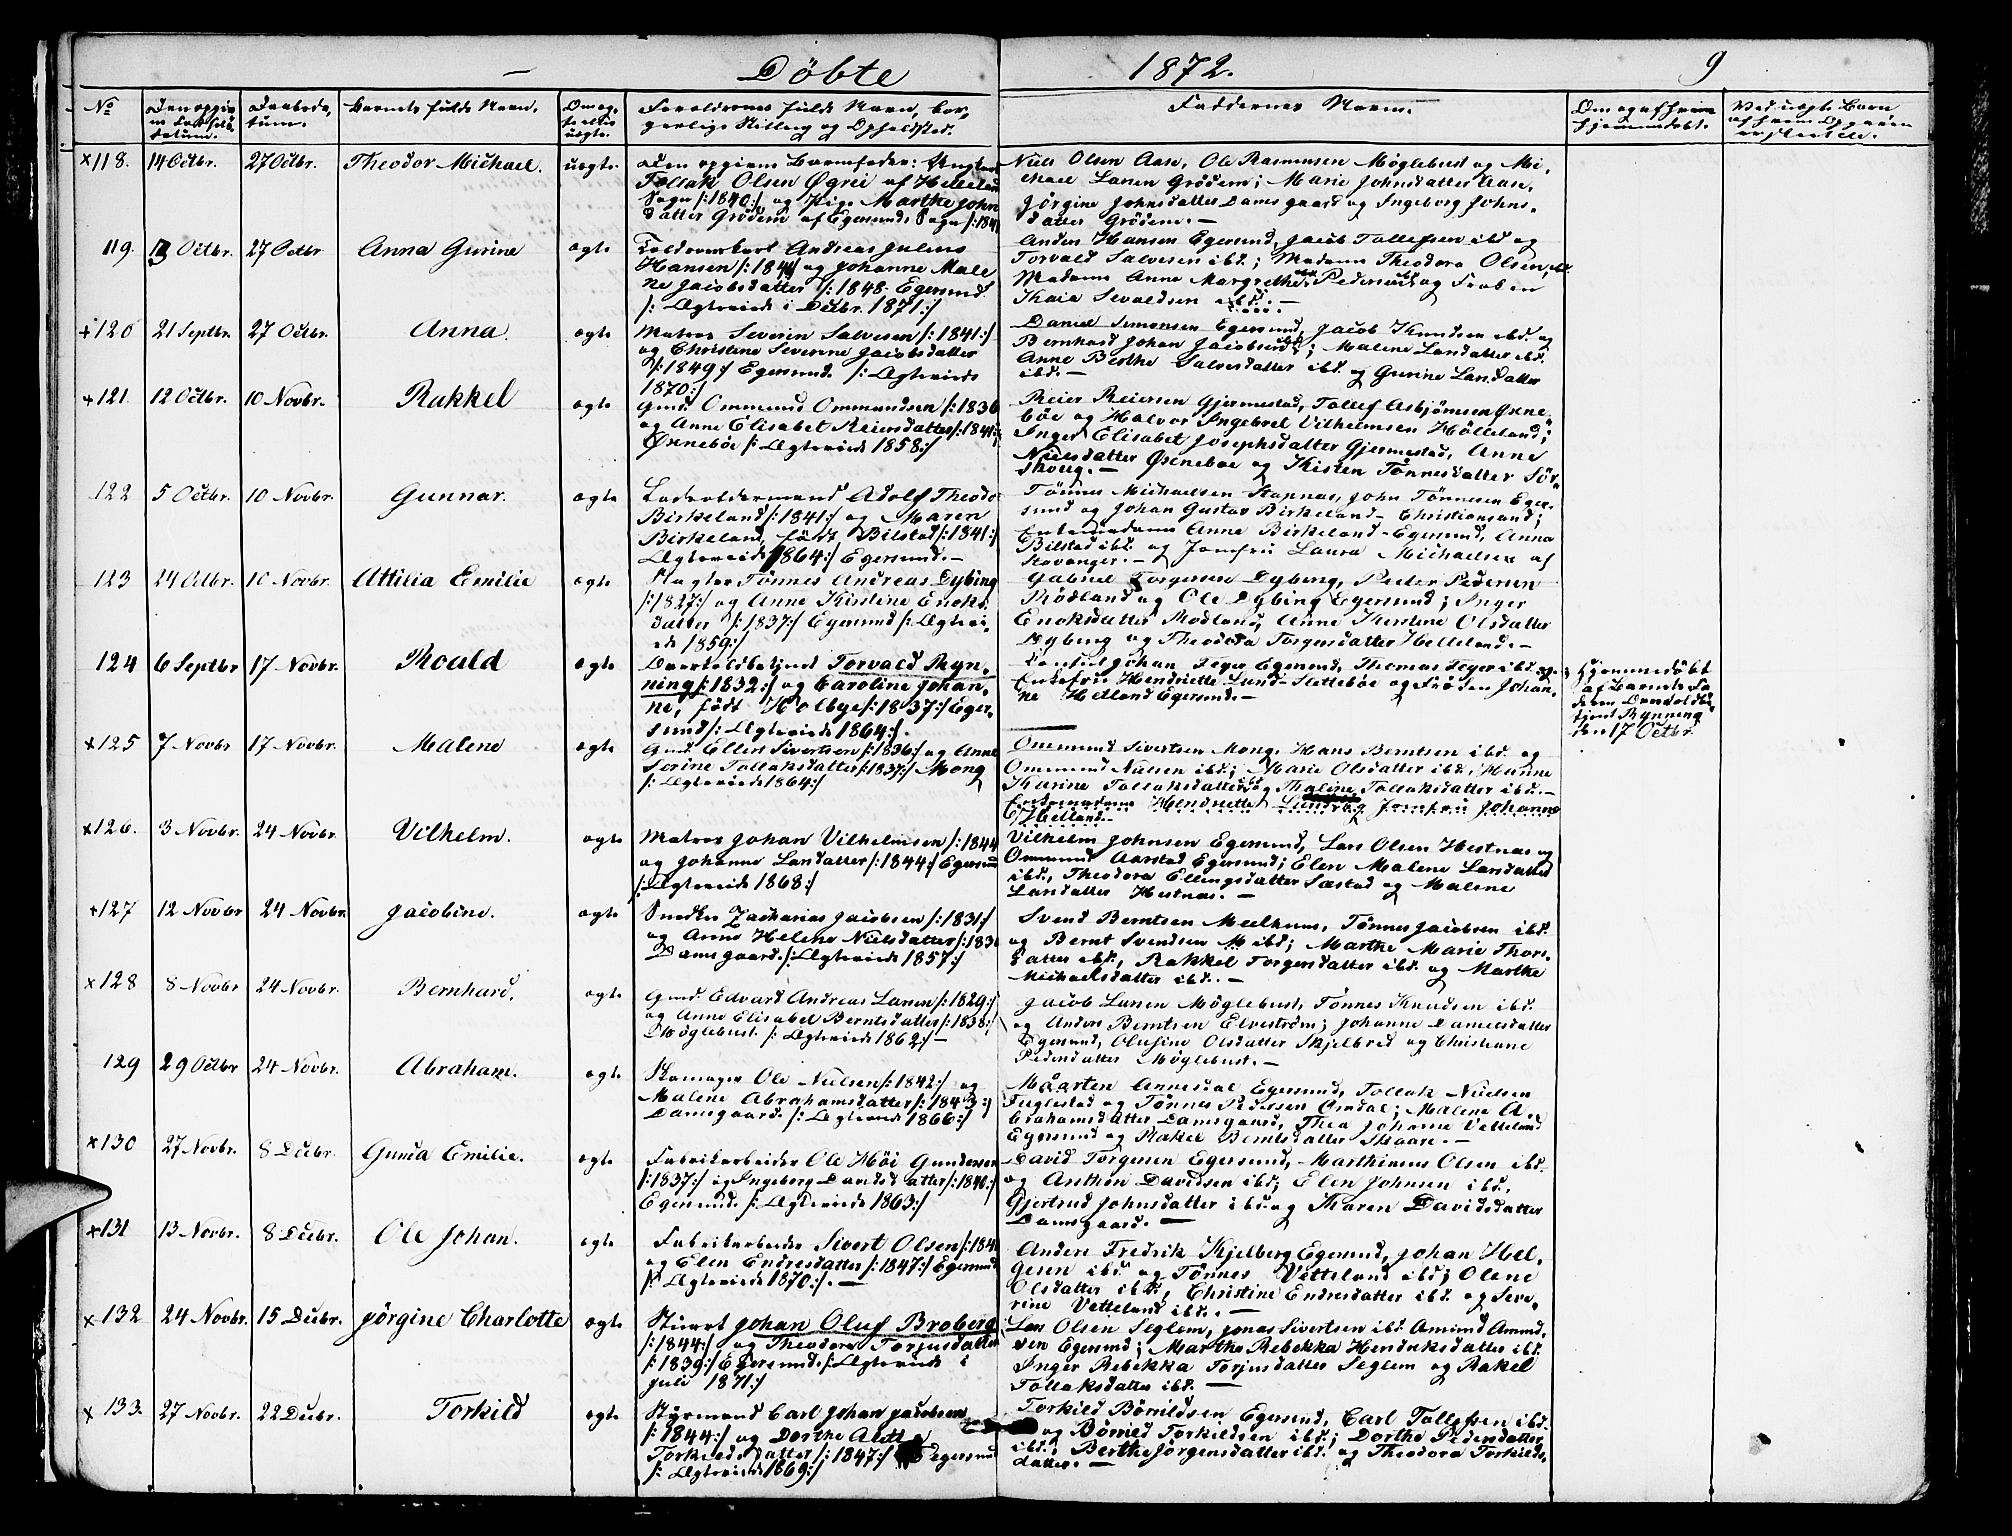 Döbte 1872. 9
No
Barnets fulde Navn.
Faddernes Navne.
×118. 14 Octbr. 27 Octbr. Theodor Michael. uegte.
Tollak Olsen Øgrei af Helleland
Sogn /:1840:/ og Pige Marthe John
datter Grödem af Egersunds Sogn
Niels Olsen Aase, Ole Rasmussen Möglebust og Mi-
chael Larsen Grödem; Marie Johnsdatter Aase,
Jörgine Johnsdatter Damsgaard og Ingeborg Johns-
datter Grödem. —
119. 13 Octbr. 27 Octbr Anna Gurine egte
Andreas Julius
Hansen og Johanne Male
ne Jacobsdatter /:1848 Egersund.
/: Egteviede i Decbr. 1871:/
Anders Hansen Egersund, Jacob Tollefsen ibd og
Torvald Salvesen ibd; Madame Theodora Olsen,
Madame Anne Margrethe Pedersen og
ibd. —
+120 21 Septbr. 27 Octbr. Anna. egte
Matros Severin Salvesen /:1841:/
og Christine Severine Jacobsdatter
/:1849:/ Egersund. /: Egteviede
1870:/
Daniel Simonsen Egersund, Jacob Knudsen ibd. og
Bernhard Johan Jacobsen; Malene Larsdatter ibd.
Anne Berthe Salvesdatter ibd. og Gurine Larsdatter
ibd. —
+121. 12 Octbr. 10 Novbr. Rakkel egte
Gmd. Ommund Ommundsen /:1836
og Anne Elisabet Reiersdatter /:1841:/
Øxnebøe /: Egteviede 1858:/
Reier Reiersen Gjermestad, Tollef Asbjörnsen Øxne-
bøe og Halvor Ingebret Vilhelmsen Hölleland;
Inger Elisabet Josephsdatter Gjermestad, Anne
Nielsdatter Øxneboe og Kisten Tönnesdatter Sör-
skoug. —
122 5 Octbr. 10 Novbr. Gunnar. egte
Adolf Theodor
Birkeland /:1841:/ og Maren
Birkeland, födt Bilstad /:1841:/
Egteviede 1864:/ Egersund. —
Tönnes Michaelsen, John Tönnesen Eger-
sund og Johan Gustav Birkeland - Christiansand;
Anne Birkeland - Egersund, Anna
Bilstad ibd. og Jomfru Laura Michaelsen af
Stavanger. —
123 24 Octbr. 10 Novbr. Attilia Emilie egte
Slagter Tönnes Andreas Dybing
/:1827:/ og Anne Kirstine Enoks-
datter /:1837:/ Egersund /: Egtevi-
ede 1859:/
Gabriel Torgersen Dybing, Peder Pedersen
Rödland og Ole Dybing Egersund; Inger
Enoksdatter Rödland, Anne Kerstine Olsdatter
Dybing og Theodora Torgersdatter Helleland. —
124 6 Septbr 17 Novbr. Roald egte
Torvald Ryn-
ning /:1832:/ og Caroline Johan-
ne, födt Holbye /:1837:/ Eger-
sund /: Egteviede 1864:/.
Johan Feyer Egersund, Thomas Feyer ibd. og
Enkefru Henriette Lund - Slettebøe og Fröken Johan-
ne Hetland Egersund. —
Hjemmedöbt
af Barnets Fa
der
Rynning
den 17 Octbr.
×125 7 Novbr 17 Novbr. Malene egte
Gmd. Ellert Sivertsen /:1836:/ og Anne
Serine Tollaksdatter /:1837:/ Mong
/: Egteviede 1864:/
Ommund Sivertsen Mong, Hans Berntsen ibd. og
Ommund Nielsen ibd.; Marie Olsdatter ibd, Hanne
Karine Tollaksdatter og Maline Tollaksdatter ibd. —
Enkemadame Hendriette Lund og Jomfru Johanne
Hetland
×126. 3 Novbr. 24 Novbr. Vilhelm. egte
Matros Johan Vilhelmsen /:1844
og Johanne Larsdatter /:1844:/ Egersund
/: Egteviede 1868:/
Vilhelm Johnsen Egersund, Lars Olsen Hestnæs og
Ommund Aarstad Egersund; Elen Malene Larsdatter
ibd., Theodora Ellingsdatter Sæstad og Malene
Larsdatter Hestnæs. —
+127 12 Novbr 24 Novbr. Jacobine. egte
Snedker Zacharias Jacobsen /:1831:/
og Anne Helene Nielsdatter
Damsgaard. /: Egteviede 1857:/
Svend Berntsen Meelhuus, Tönnes Jacobsen ibd.
og Bernt Svendsen ibd; Marthe Marie Thors-
datter ibd, Rakkel Torgersdatter ibd. og Marthe
Michaelsdatter ibd. —
×128 8 Novbr 24 Novbr. Bernhard. egte
Gmd. Edvard Andreas Larsen /:1829:/
og Anne Elisabet Berntsdatter /:1838:/
Möglebust. /: Egteviede 1862:/ —
Jacob Larsen Möglebust, Tönnes Knudsen ibd.
og Anders Berntsen Elveström; Johanne Danielsdatter
Egersund, Olufine Olsdatter Skjelbred og Christiane
Pedersdatter Möglebust. —
129 29 Octbr 24 Novbr. Abraham. egte
Skomager Ole Nielsen /:1842:/ og
Malene Abrahamsdatter /:1843:/
Damsgaard. /: Egteviede 1866:/
Maarten Annesdal Egersund, Tollak Nielsen
Fuglestad og Tönnes Pedersen Omdal; Malene A-
brahamsdatter Damsgaard, Thea Johanne Vetteland
Egersund og Rakel Berntsdatter Skaare. —
×130 27 Novbr. 8 Decbr. Gunda Emilie. egte
Fabrikarbeider Ole Höi Gundersen
/:1837:/ og Ingeborg Davidsdatter /:1840:/
Egersund. /: Egteviede 1863:/
David Torgersen Egersund, Marthinius Olsen ibd.
og Anthon Davidsen ibd; Elen Johnsen ibd.
Gjertrud Johnsdatter ibd. og Karen Davidsdatter
Damsgaard. —
×131 13 Novbr. 8 Decbr. Ole Johan. egte
Fabrikarbeider Sivert Olsen
og Elen Endresdatter /:1847:/ Egersund
/: Egteviede 1870:/. —
Anders Fredrik Kjelberg Egersund, Johan Hel-
gesen ibd. og Tönnes Vetteland ibd; Olene
Olsdatter ibd, Christine Endresdatter ibd. og Seve-
rine Vetteland ibd. —
×132 24 Novbr. 15 Decbr. Jörgine Charlotte egte
Stuert Johan Oluf Broberg
/:1844:/ og Theodora Torjusdatter
/:1839:/ Egersund. /: Egteviede i
Juli 1871:/
Lars Olsen Seglem, Jonas Sivertsen ibd. Amund Amund-
sen Egersund; Marthe Rebekka Hendriksdatter ibd.
Inger Rebekka Torjusdatter Seglem og Rakel
Tollaksdatter ibd. —
× 133. 27 Novbr. 22 Decbr. Torkild egte
Styrmand Carl Johan Jacobsen
/:1844:/ og Dorthe
Torkildsdatter /:1847:/ Egersund
/: Egteviede 1869:/
Torkild Börildsen Egersund, Carl Tollefsen ibd.
og Börild Torkildsen ibd.; Dorthe Pedersdatter
ibd., Berthe Jörgensdatter ibd. og Theodora Torkilds-
datter. —